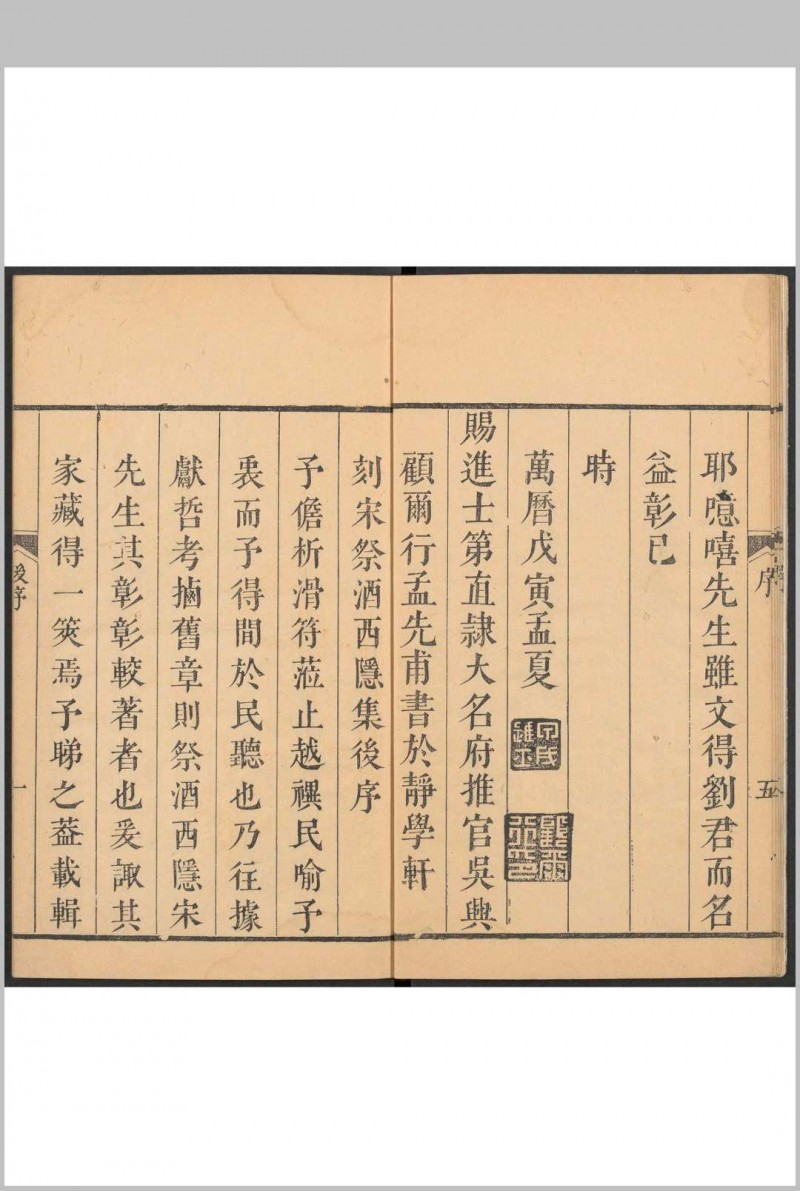 序
五
耶噫嘻先生雖文得劉君而名
益彰已
時
萬曆戊寅孟夏
賜進士第直隸大名府推官吳興
顧爾行孟先甫書於靜學軒
刻宋祭酒西隱集後序
予儋析滑符蒞止越禩民喻予
衷而予得間於民聽也乃往據
獻哲考摛舊章則祭酒西隱宋
先生其彰彰較著者也爰諏其
家藏得一筴焉予睇之葢載輯
後序
一